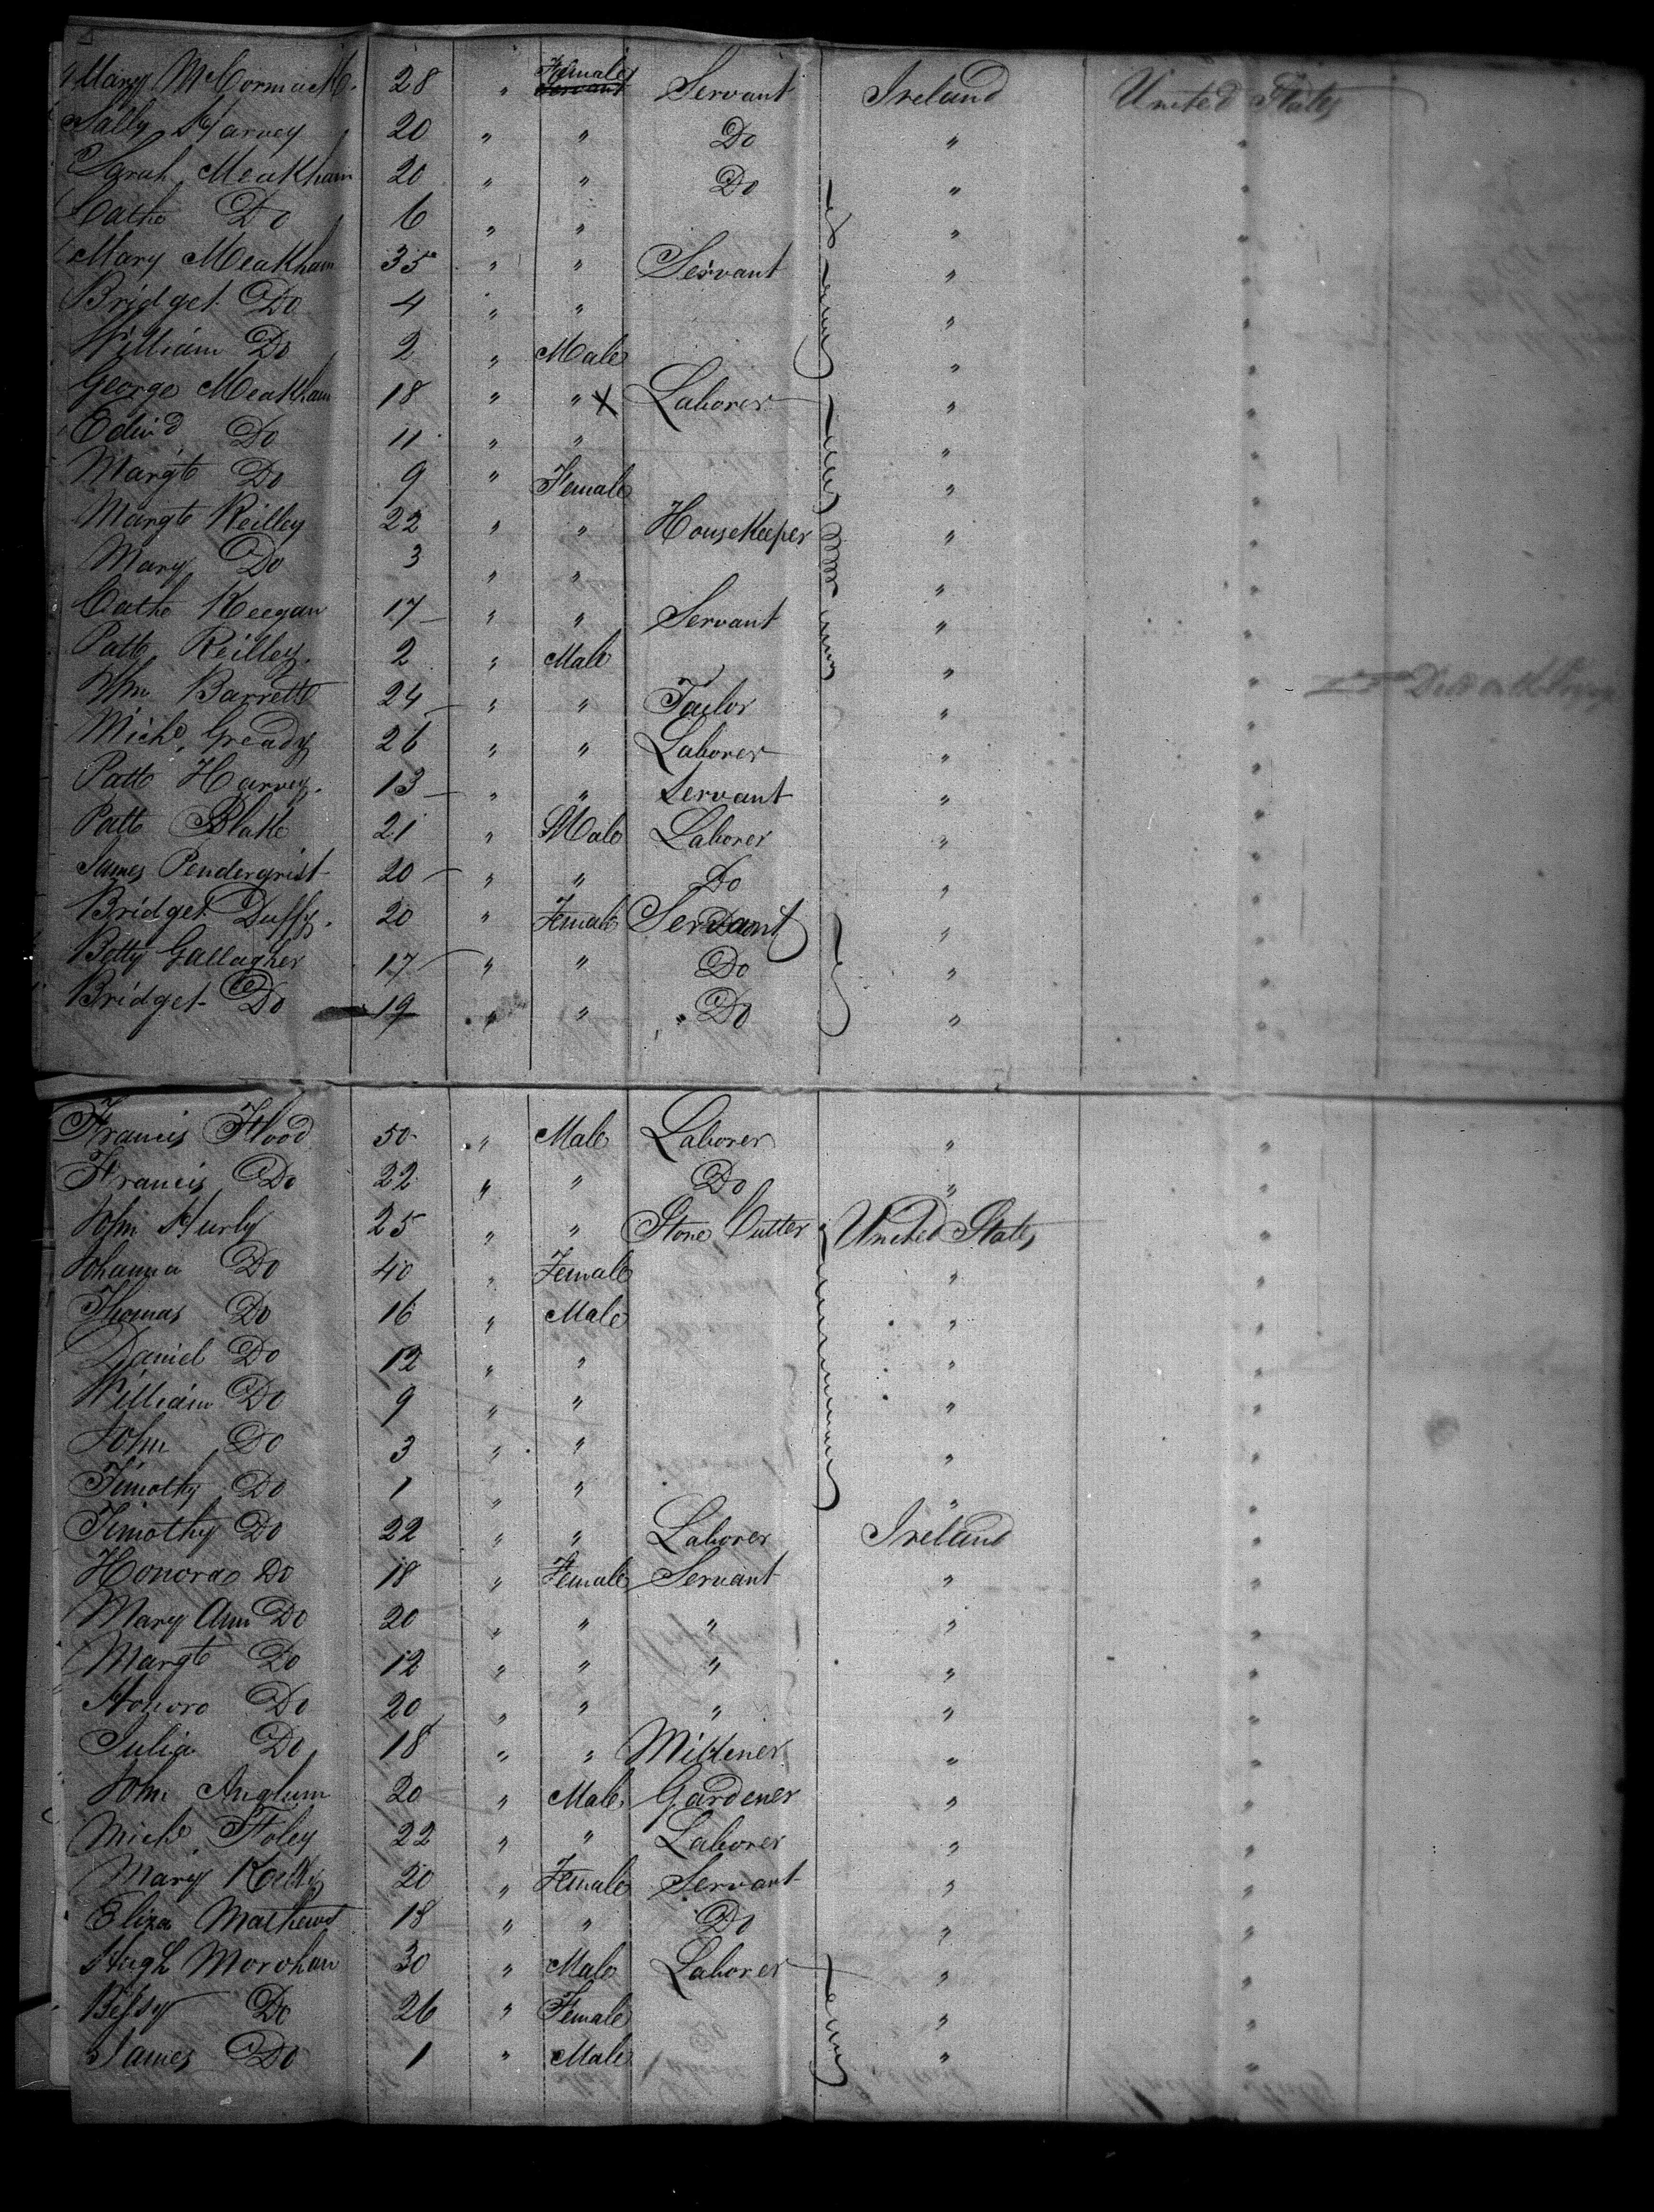 Mary McCormack 28 " Female Servant Servant Ireland United States
Sally Harvey 20 " " Do " "
Sarah Meakham 20 " " Do " "
Cathe Do 6 " " " "
Mary Meakham 35 " " Servant " "
Bridget Do 4 " " " "
William Do 2 " Male " "
George Meakham 18 " " X Laborer " "
Edwd Do 11 " " " "
Margt Do 9 " Female " "
Margt Reilley 22 " " Housekeeper " "
Mary Do 3 " " " "
Cathe Keegan 17 " " Servant " "
Patt Reilley 2 " Male " " Died on
Wm Barrett 24 " " Tailor " "
Michl Gready 26 " " Laborer " "
Patt Harvey 13 " " Servant " "
Patt Blake 21 " Male Laborer " "
James Pendergrist 20 " " Do " "
Bridget Duffy 20 " Female Servant " "
Betty Gallagher 17 " " Do " "
Bridget Do 19 " " Do " "
Francis Flood 50 " Male Laborer " "
Francis Do 22 " " Do " "
John Hurly 25 " " Stone Cutter United States "
Johanna Do 40 " Female " "
Thomas Do 16 " Male " "
Daniel Do 12 " " " "
William Do 9 " " " "
John Do 3 " " " "
Timothy Do 1 " " " "
Timothy Do 22 " " Laborer Ireland "
Honora Do 18 " Female Servant " "
Mary Ann Do 20 " " " " "
Margt Do 12 " " " " "
Honoro Do 20 " " " " "
Julia Do 18 " " Millener " "
John Anglum 20 " Male Gardener " "
Michl Foley 22 " " Laborer " "
Mary Kelly 20 " Female Servant " "
Eliza Mathews 18 " " Do " "
Hugh Morohan 30 " Male Laborer " "
Betsy Do 26 " Female " "
James Do 1 " Male " "